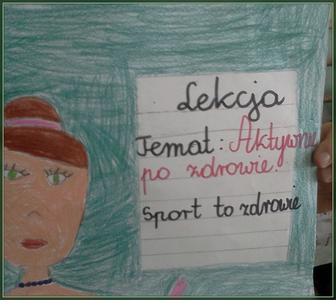 Lekcja
Temat: Aktywnie
po zdrowie!
Sport to zdrowie